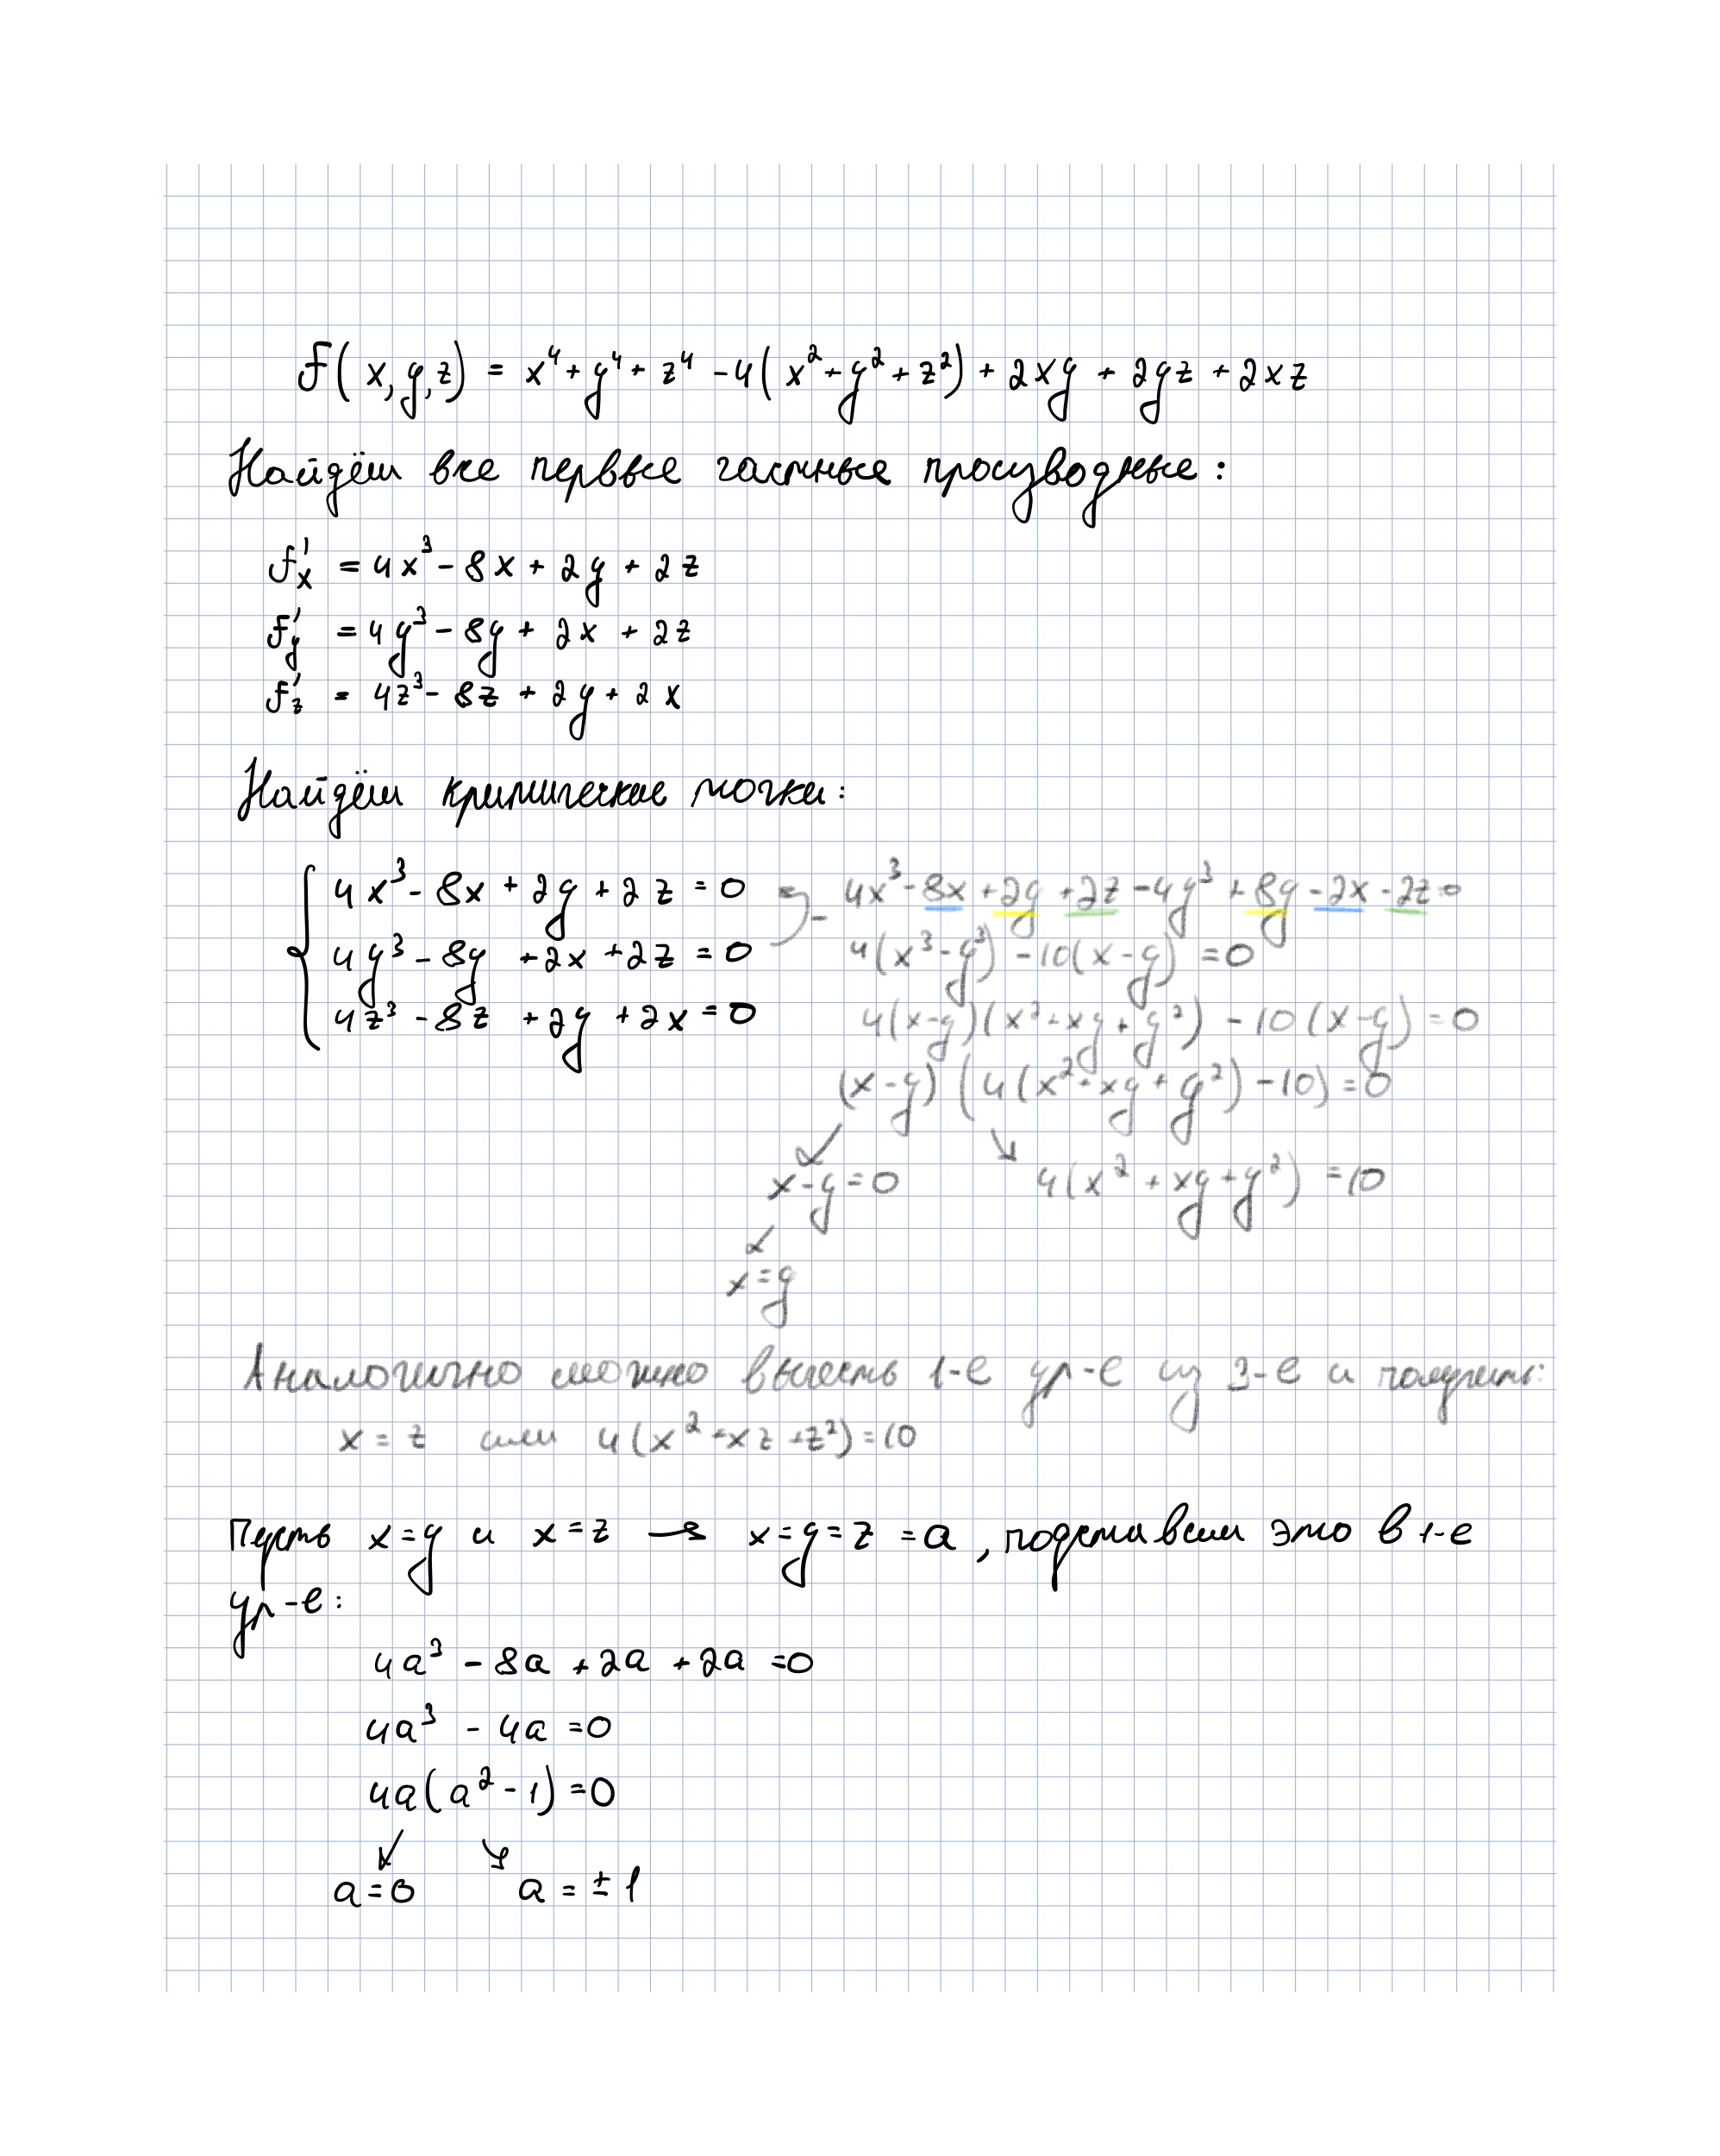 f(x,y,z) = x⁴ + y⁴ + z⁴ - 4(x² + y² + z²) + 2xy + 2yz + 2xz
Найдём все первые частные производные:
f'x = 4x³ - 8x + 2y + 2z
f'y = 4y³ - 8y + 2x + 2z
f'z = 4z³ - 8z + 2y + 2x
Найдём критические точки:
4x³ - 8x + 2y + 2z = 0
4y³ - 8y + 2x + 2z = 0
4z³ - 8z + 2y + 2x = 0
- 4x³ - 8x + 2y + 2z - 4y³ + 8y - 2x - 2z = 0
4(x³ - y³) - 10(x - y) = 0
4(x-y)(x² + xy + y²) - 10(x-y) = 0
(x-y)(4(x² + xy + y²) - 10) = 0
↙ ↘
x - y = 0 4(x² + xy + y²) = 10
↙
x = y
Аналогично можно вычесть 1-е ур-е из 3-е и получить:
x = z или 4(x² + xz + z²) = 10
Пусть x = y и x = z → x = y = z = a, подставим это в 1-е
ур-е:
4a³ - 8a + 2a + 2a = 0
4a³ - 4a = 0
4a(a² - 1) = 0
↙ ↘
a = 0 a = ± 1